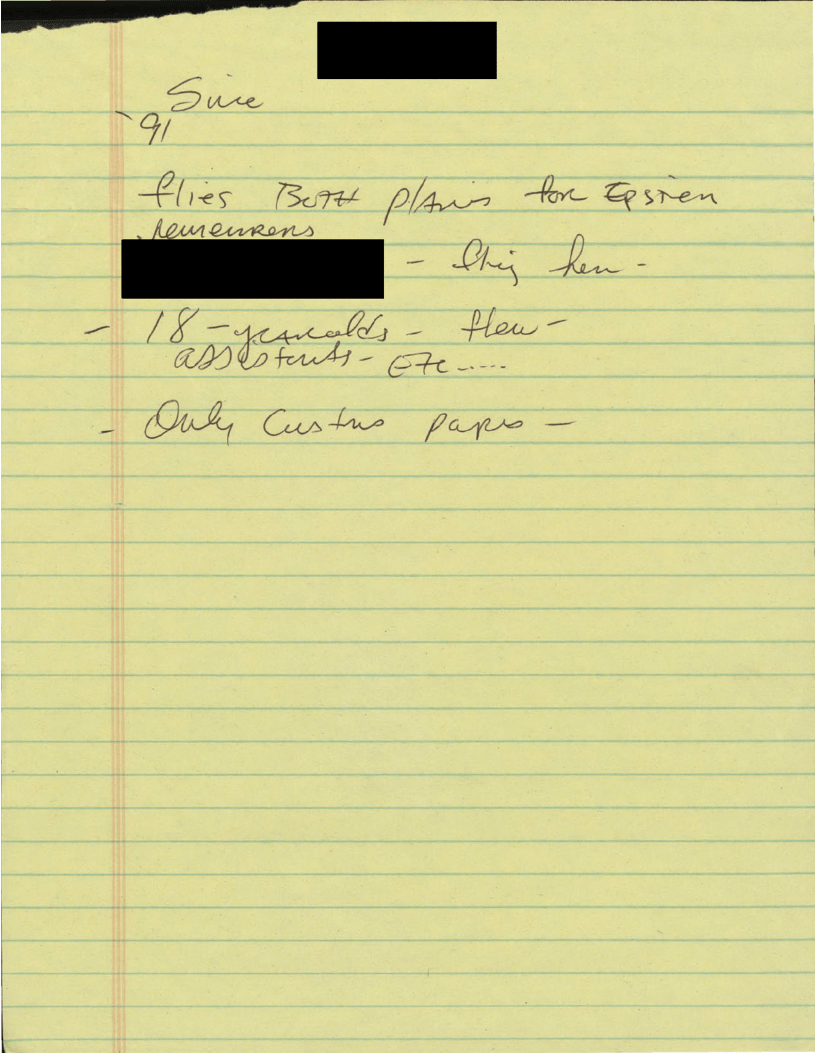 Since
'91
flies BOTH plans for Epstien
remembers
- flying her -
- 18-yearolds - flew -
assistants - Etc.....
- Only Customs papers -